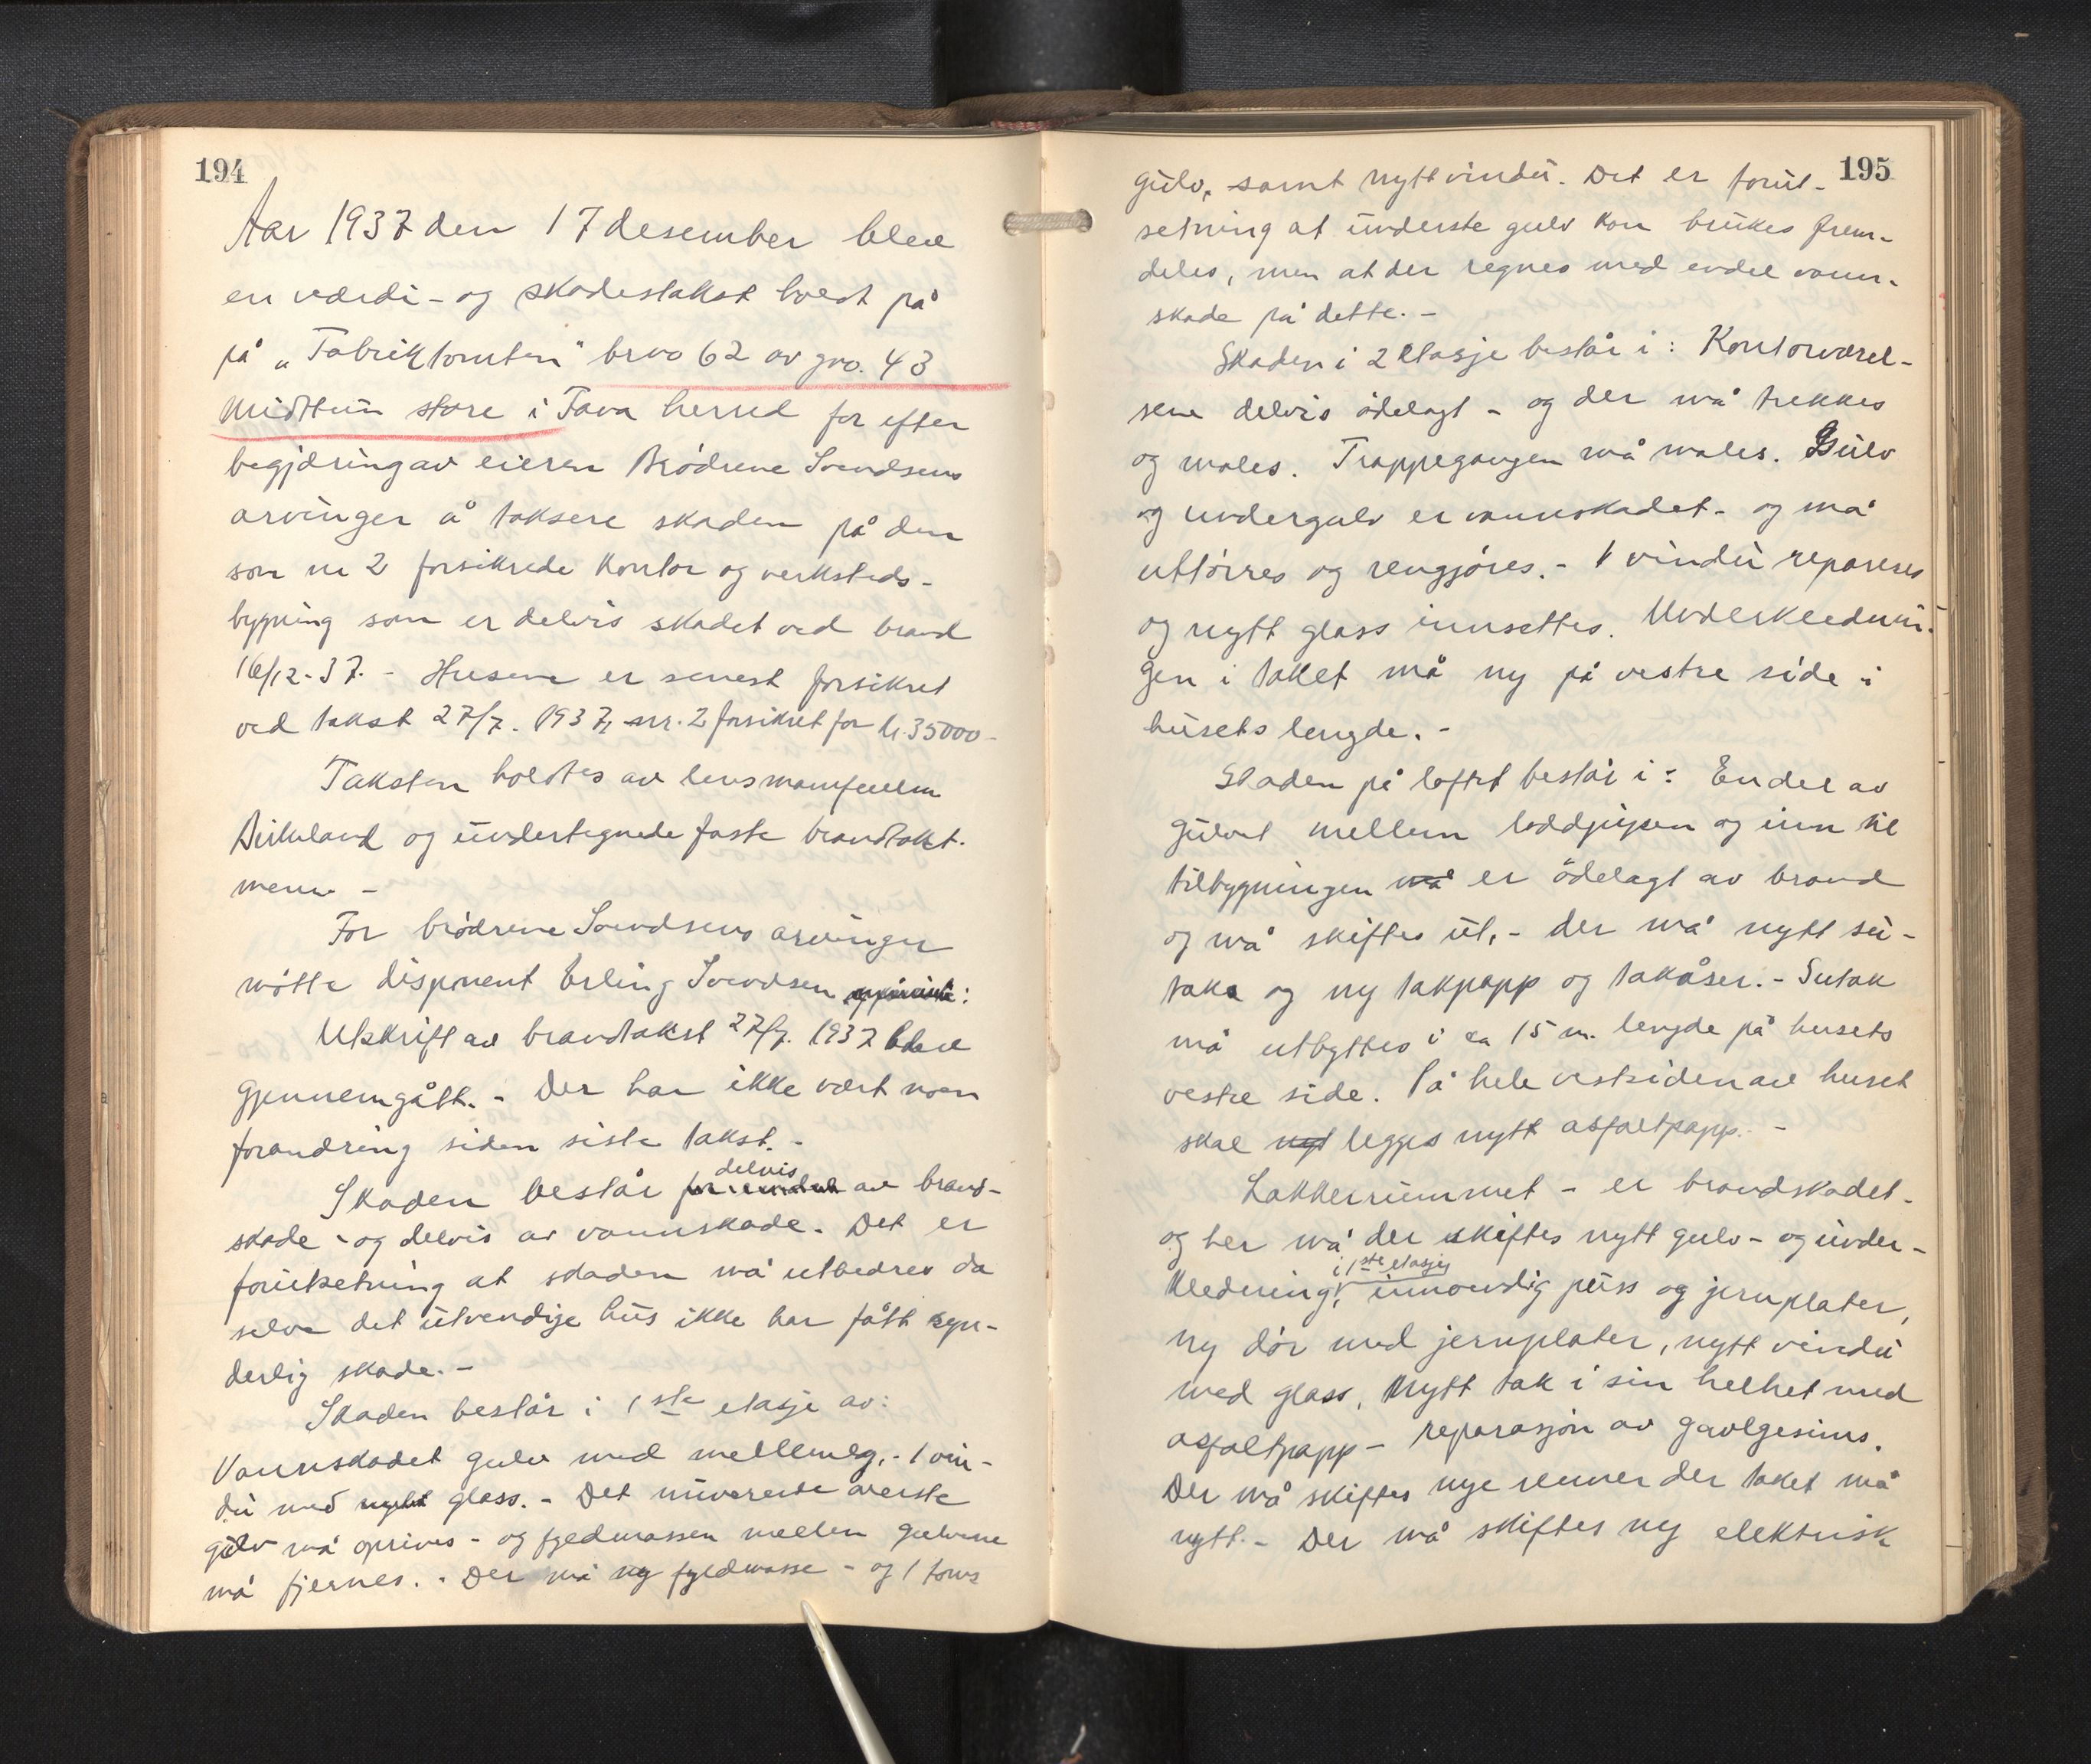 194
Aar 1937 den 17 desember blev
en værdi- og skadestakst holdt på
på "Fabriktomten" brno 62 av gno. 43
Midttun store i Fana herred for efter
begjæring av eieren Brødrene Svendsens
arvinger å taksere skaden på den
som nr 2 forsikrede Kontor og verksteds-
bygning som er delvis skadet ved brand
16/12-37. - Husene er senest forsikret
ved takst 27/7. 1937, nr. 2 forsikret for kr. 35000-
Taksten holdtes av lensmannfullm
Birkeland og undertegnede faste brandtakst.
menn -
For brødrene Svendsens arvinger
møtte disponent Erling Svendsen
Utskrift av brandtakst 27/7. 1937 blev
gjennemgått. - Der har ikke vært noen
forandring siden siste takst. -
Skaden består delvis av brand-
skade - og delvis av vannskade. Det er
forutsetning at skaden må utbedres da
selve det utvendige hus ikke har fått syn-
derlig skade. -
Skaden består i 1ste etasje av:
Vannskadet gulv med mellemlag, - 1 vin-
du med nytt glass. - Det nuværende øverste
gulv må oprives - og fyldmassen mellem gulvene
må fjernes. - Der må ny fyldmasse - og 1 toms
195
gulv, samt nytt vindu. Det er forut-
setning at underste gulv kan brukes frem-
deles, men at der regnes med endel vann-
skade på dette. -
Skaden i 2 etasje består i: Kontorværel-
sene delvis ødelagt - og der må trekkes
og males. Trappegangen må males. Gulv
og undergulv er vannskadet - og må
uttørres og rengjøres. - 1 vindu repareres
og nytt glass innsettes. Underklednin-
gen i taket må ny på vestre side i
husets lengde. -
Skaden på loftet består i: En del av
gulvet mellem loddpipen og inn til
tilbygningen må er ødelagt av brand
og må skiftes ut, - der må nytt su-
tak og ny takpapp og takåser. - Sutak
må utbyttes i ca 15 m. lengde på husets
vestre side. På hele vestsiden av huset
skal nyt legges nytt asfaltpapp. -
Lakkerrummet - er brandskadet -
og her må der skiftes nytt gulv - og under-
kledning, i 1ste etasje innvendig puss og jernplater,
ny dør med jernplater, nytt vindu
med glass, Nytt tak i sin helhet med
asfaltpapp - reparasjon av gavlgesims.
Der må skiftes nye renner der taket må
nytt. - Der må skiftes ny elektrisk